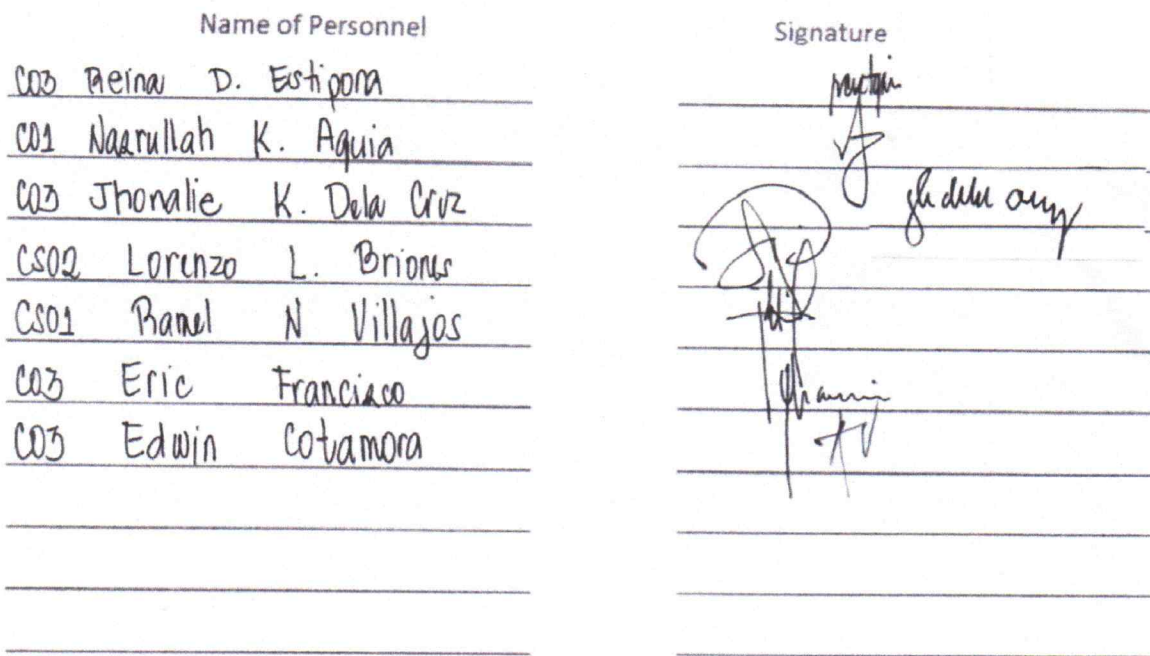 Name of Personnel
Signature
CO3 Reina D. Estipona
CO1 Nasrullah K. Aquia
CO3 Jhonalie K. Dela Cruz
CSO2 Lorenzo L. Briones
CSO1 Ramel N Villajos
CO3 Eric Francisco
CO3 Edwin Cotamora